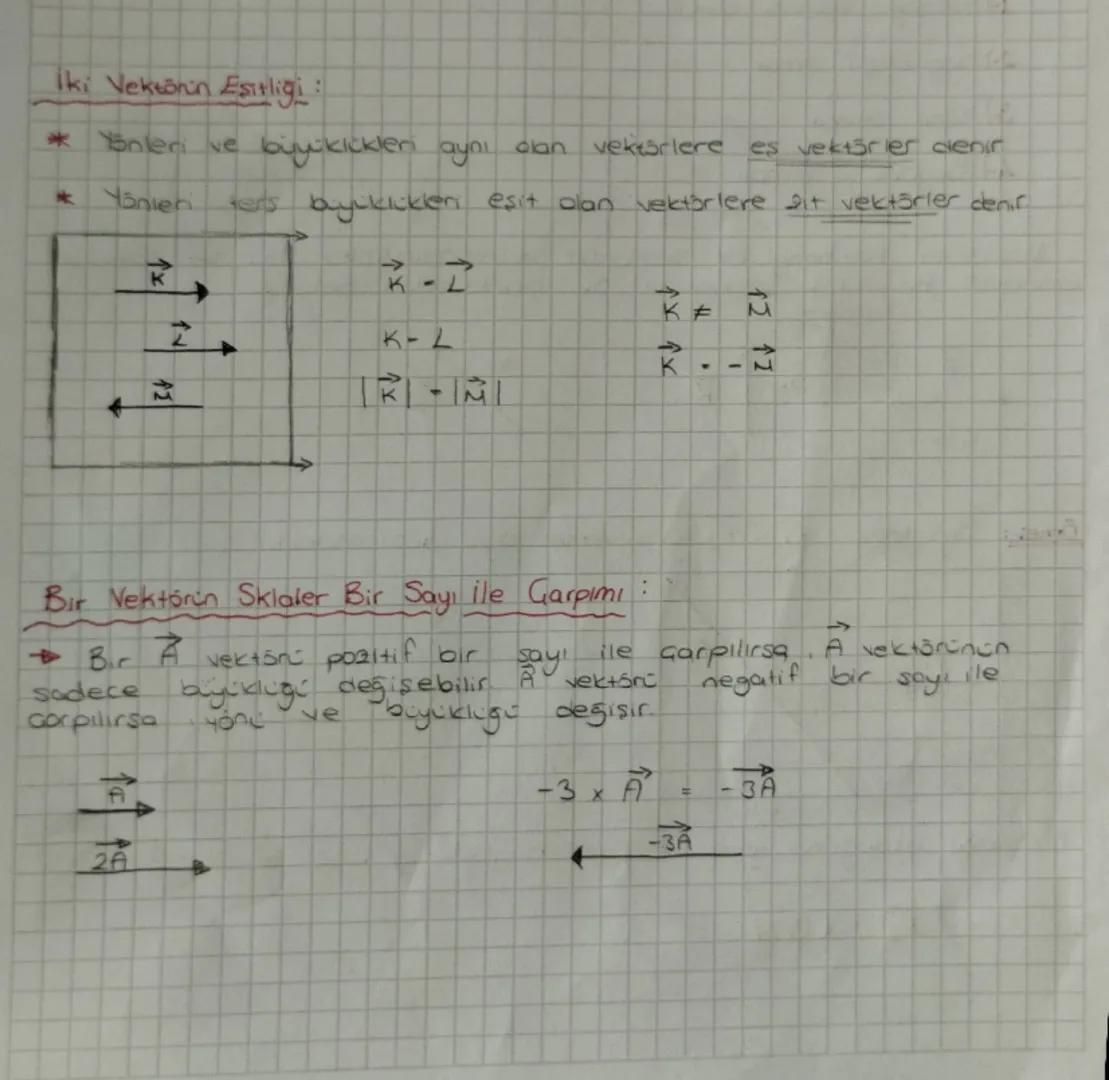 İki Vektörün Eşitliği :
* Yönleri ve büyüklükleri aynı olan vektörlere eş vektörler denir
* Yönleri ters büyüklükleri eşit olan vektörlere zıt vektörler denir
K⃗
L⃗
M⃗
K⃗ = L⃗
K = L
|K⃗| = |M⃗|
K⃗ ≠ M⃗
K⃗ = -M⃗
Bir Vektörün Sklaler Bir Sayı ile Çarpımı :
→ Bir A⃗ vektörü pozitif bir sayı ile çarpılırsa, A⃗ vektörünün
sadece büyüklüğü değişebilir. A⃗ vektörü negatif bir sayı ile
çarpılırsa yönü ve büyüklüğü değişir.
A⃗
2A⃗
-3 x A⃗ = -3A⃗
-3A⃗